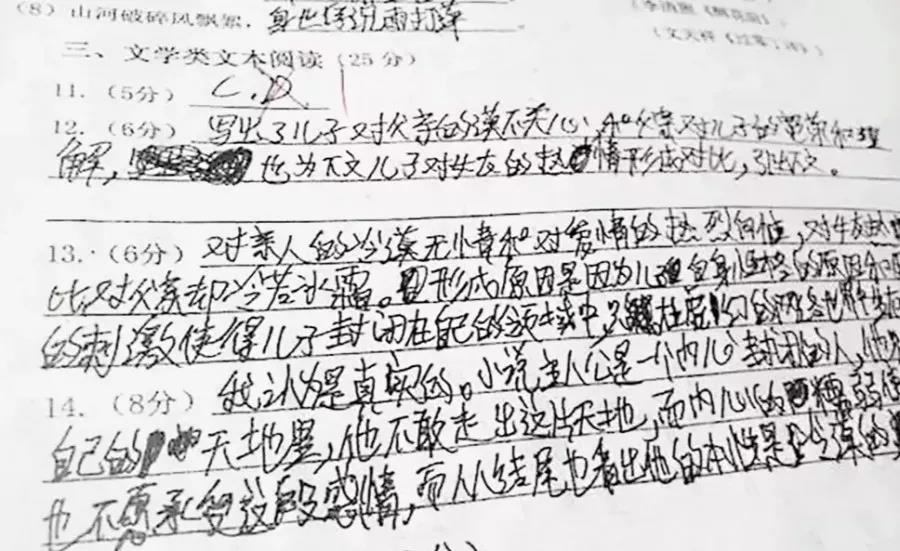 (8) 山河破碎风飘絮，身世浮沉雨打萍
(李清照《醉花阴》)
(文天祥《过零丁洋》)
三、文学类文本阅读 (25 分)
11. (5分) C.D
12. (6分) 写出了儿子对父亲的漠不关心，和父亲对儿子的和理
解，也为下文儿子对女友的热情形成对比，引出下文。
13. (6分) 对亲人的冷漠无情和对爱情的热烈向往，对女友热
比对父亲却冷若冰霜。形成原因是因为儿自身性格的原因和
的刺激使得儿子封闭在自己的领域中，
14. (8分) 我认为是真实的。小说主人公是一个内心封闭的人，他
自己的天地里，他不敢走出这片天地，而内心的懦弱使
也不愿承受这段感情，而从结尾也看出他的本性是冷漠的